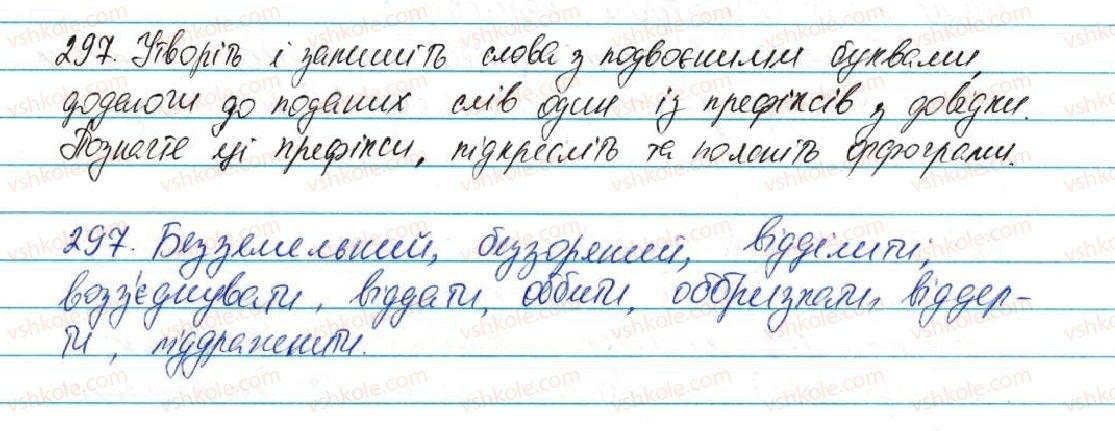 297. Утворіть і запишіть слова з подвоєними буквами,
додаючи до поданих слів один із префіксів з довідки.
Позначте ці префікси, підкресліть та поясніть орфограми.
297. Безземельний, беззоряний, відділити,
возз'єднувати, віддати, оббити, оббризкати, віддер-
ти, піддражнити.